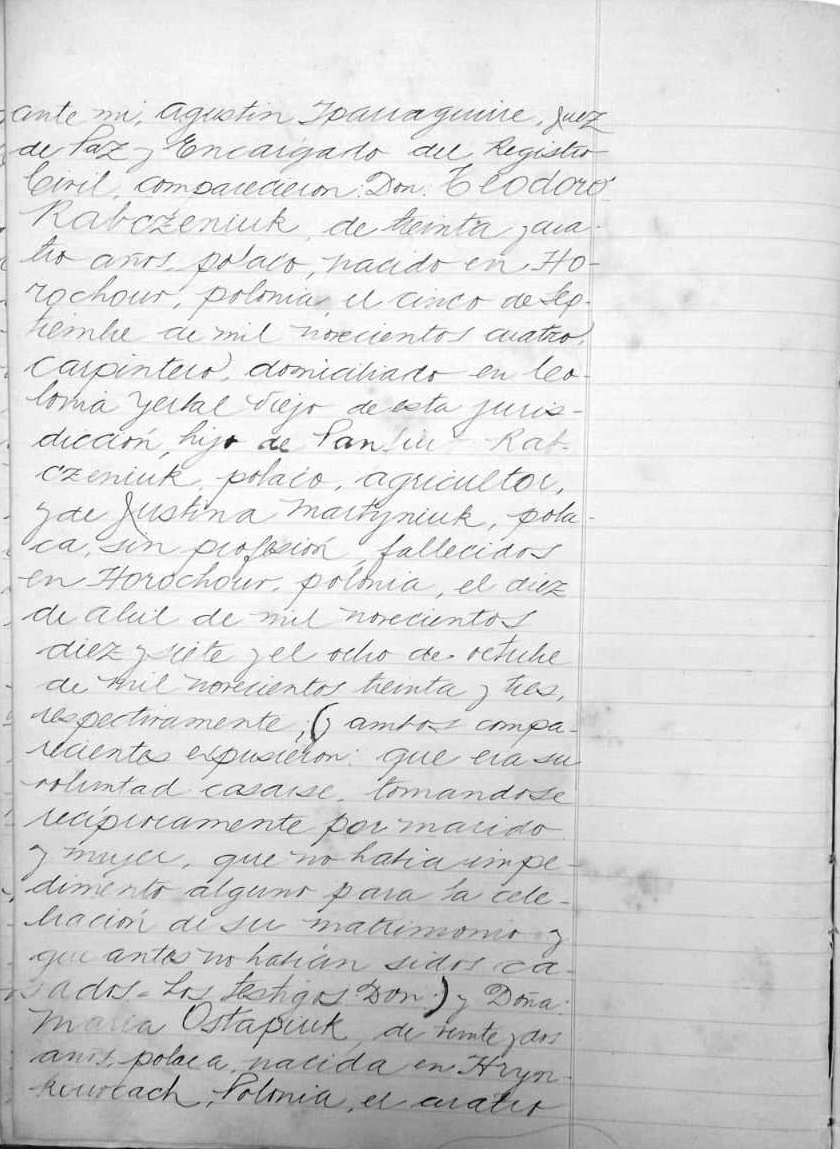 ante mi, Agustin Iparraguirre, Juez
de Paz y Encargado del Registro
Civil, comparecieron: Don. Teodoro
Rabczeniuk, de treinta y cua-
tro años, polaco, nacido en Ho-
rochow, polonia, el cinco de Sep-
tiembre de mil novecientos cuatro,
carpintero, domiciliado en Co-
lonia Yerbal Viejo de esta juris-
dicción, hijo de Panfiu Rab-
czeniuk, polaco, agricultor,
y de Justina Martyniuk, pola-
ca, sin profesión, fallecidos
en Horochow, polonia, el diez
de abril de mil novecientos
diez y siete y el ocho de octubre
de mil novecientos treinta y tres,
respectivamente, (y ambos compa-
recientes expusieron: que era su
voluntad casarse, tomandose
recíprocamente por marido
y mujer, que no habia impe-
dimento alguno para la cele-
bración de su matrimonio y
que antes no habián sidos ca-
sados. Los testigos Don:) y Doña:
Maria Ostapiuk, de veinte y dos
años, polaca, nacida en Hryn-
, Polonia, el cuatro